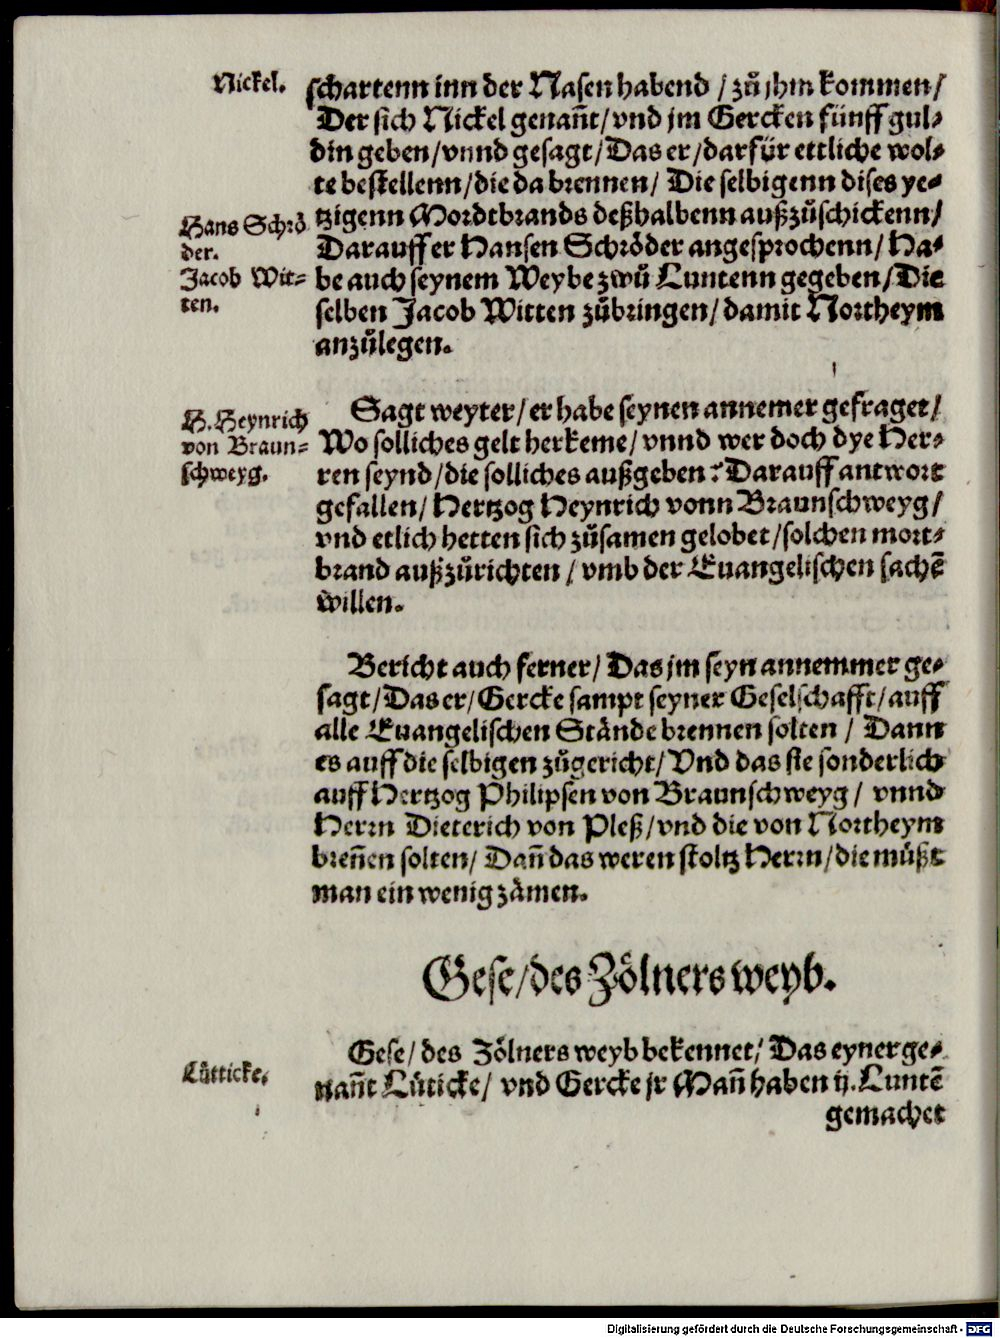 Nickel.
schartenn inn der Nasen habend / zů jhm kommen /
Der sich Nickel genañt / vnd jm Gercken fünff gul⸗
din geben / vnnd gesagt / Das er / darfür ettliche wol⸗
te bestellenn / die da brennen / Die selbigenn dises ye⸗
tzigenn Mordtbrands deßhalbenn außzůschickenn /
Hans Schrö
der.
Jacob Wit⸗
ten.
Darauff er Hansen Schröder angesprochenn / Ha⸗
be auch seynem Weybe zwů Luntenn gegeben / Die
selben Jacob Witten zůbringen / damit Northeym
anzůlegen.
H. Heynrich
von Braun⸗
schweyg.
Sagt weyter / er habe seynen annemer gefraget /
Wo solliches gelt herkeme / vnnd wer doch dye Her⸗
ren seynd / die solliches außgeben? Darauff antwort
gefallen / Hertzog Heynrich vonn Braunschweyg /
vnd etlich hetten sich zůsamen gelobet / solchen mort⸗
brand außzůrichten / vmb der Euangelischen sachẽ
willen.
Bericht auch ferner / Das jm seyn annemmer ge⸗
sagt / Das er / Gercke sampt seyner Geselschafft / auff
alle Euangelischen Stände brennen solten / Dann
es auff die selbigen zůgericht / Vnd das sie sonderlich
auff Hertzog Philipsen von Braunschweyg / vnnd
Herrn Dieterich von Pleß / vnd die von Northeym
breñen solten / Dañ das weren stoltz Herrn / die můßt
man ein wenig zämen.
Gese / des Zölners weyb.
Gese / des Zölners weyb bekennet / Das eyner ge⸗
Lütticke.
nañt Lüticke / vnd Gercke jr Mañ haben ij. Luntẽ
gemachet
Digitalisierung gefördert durch die Deutsche Forschungsgemeinschaft - DFG